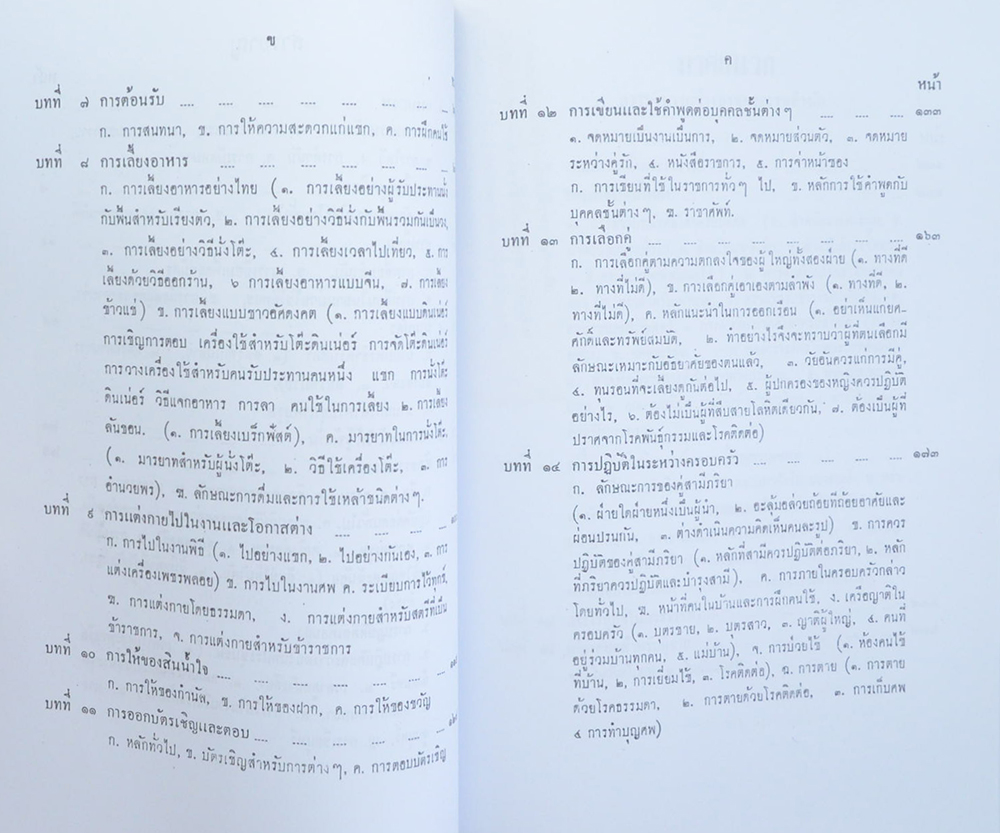 ข
บทที่ ๗ การต้อนรับ .... .... .... .... .... .... ....
ก. การสนทนา, ข. การให้ความสะดวกแก่แขก, ค. การฝึกคนใช้
บทที่ ๘ การเลี้ยงอาหาร .... .... .... .... .... ....
ก. การเลี้ยงอาหารอย่างไทย (๑. การเลี้ยงอย่างผู้รับประทานนั่ง
กับพื้นสำหรับเรียงตัว, ๒. การเลี้ยงอย่างวิธีนั่งกับพื้นรวมกันเป็นวง,
๓. การเลี้ยงอย่างวิธีนั่งโต๊ะ, ๔. การเลี้ยงเวลาไปเที่ยว, ๕. การ
เลี้ยงด้วยวิธีออกร้าน, ๖ การเลี้ยงอาหารแบบจีน, ๗. การเลี้ยง
ข้าวแช่) ข. การเลี้ยงแบบชาวอัศดงคต (๑. การเลี้ยงแบบดินเน่อร์
การเชิญการตอบ เครื่องใช้สำหรับโต๊ะดินเน่อร์ การจัดโต๊ะดินเน่อร์
การวางเครื่องใช้สำหรับคนรับประทานคนหนึ่ง แขก การนั่งโต๊ะ
ดินเน่อร์ วิธีแจกอาหาร การลา คนใช้ในการเลี้ยง ๒. การเลี้ยง
ลันชอน. (๑. การเลี้ยงเบร็กฟัสต์), ค. มารยาทในการนั่งโต๊ะ,
(๑. มารยาทสำหรับผู้นั่งโต๊ะ, ๒. วิธีใช้เครื่องโต๊ะ, ๓. การ
อำนวยพร), ฆ. ลักษณะการดื่มและการใช้เหล้าชนิดต่างๆ.
บทที่ ๙ การแต่งกายไปในงานและโอกาสต่าง .... .... ....
ก. การไปในงานพิธี (๑. ไปอย่างแขก, ๒. ไปอย่างกันเอง, ๓. การ
แต่งเครื่องเพชรพลอย) ข. การไปในงานศพ ค. ระเบียบการไว้ทุกข์,
ฆ. การแต่งกายโดยธรรมดา, ง. การแต่งกายสำหรับสตรีที่เป็น
ข้าราชการ, จ. การแต่งกายสำหรับข้าราชการ
บทที่ ๑๐ การให้ของสินน้ำใจ .... .... .... .... .... ....
ก. การให้ของกำนัล, ข. การให้ของฝาก, ค. การให้ของขวัญ
บทที่ ๑๑ การออกบัตรเชิญและตอบ .... .... .... .... ....
ก. หลักทั่วไป, ข. บัตรเชิญสำหรับการต่างๆ, ค. การตอบบัตรเชิญ
ค
หน้า
บทที่ ๑๒ การเขียนและใช้คำพูดต่อบุคคลชั้นต่างๆ .... .... .... ๑๓๓
๑. จดหมายเป็นงานเป็นการ, ๒. จดหมายส่วนตัว, ๓. จดหมาย
ระหว่างคู่รัก, ๔. หนังสือราชการ, ๕. การจ่าหน้าซอง
ก. การเขียนที่ใช้ในราชการทั่วๆ ไป, ข. หลักการใช้คำพูดกับ
บุคคลชั้นต่างๆ, ฆ. ราชาศัพท์.
บทที่ ๑๓ การเลือกคู่ .... .... .... .... .... .... .... ๑๖๓
ก. การเลือกคู่ตามความตกลงใจของผู้ใหญ่ทั้งสองฝ่าย (๑. ทางที่ดี
๒. ทางที่ไม่ดี), ข. การเลือกคู่เอาเองตามลำพัง (๑. ทางที่ดี, ๒.
ทางที่ไม่ดี), ค. หลักแนะนำในการออกเรือน (๑. อย่าเห็นแก่ยศ-
ศักดิ์และทรัพย์สมบัติ, ๒. ทำอย่างไรจึงจะทราบว่าผู้ที่ตนเลือกมี
ลักษณะเหมาะกับอัธยาศัยของตนแล้ว, ๓. วัยอันควรแก่การมีคู่,
๔. ทุนรอนที่จะเลี้ยงดูกันต่อไป, ๕. ผู้ปกครองของหญิงควรปฏิบัติ
อย่างไร, ๖. ต้องไม่เป็นผู้ที่สืบสายโลหิตเดียวกัน, ๗. ต้องเป็นผู้ที่
ปราศจากโรคพันธุ์กรรมและโรคติดต่อ)
บทที่ ๑๔ การปฏิบัติในระหว่างครอบครัว .... .... .... .... ๑๗๓
ก. ลักษณะการของคู่สามีภริยา
(๑. ฝ่ายใดฝ่ายหนึ่งเป็นผู้นำ, ๒. อะลุ้มอล่วยถ้อยทีถ้อยอาศัยและ
ผ่อนปรนกัน, ๓. ต่างดำเนินความคิดเห็นคนละรูป) ข. การควร
ปฏิบัติของคู่สามีภริยา (๑. หลักที่สามีควรปฏิบัติต่อภริยา, ๒. หลัก
ที่ภริยาควรปฏิบัติและบำรุงสามี), ค. การภายในครอบครัวกล่าว
โดยทั่วไป, ฆ. หน้าที่คนในบ้านและการฝึกคนใช้, ง. เครือญาติใน
ครอบครัว (๑. บุตรชาย, ๒. บุตรสาว, ๓. ญาติผู้ใหญ่, ๔. คนที่
อยู่ร่วมบ้านทุกคน, ๕. แม่บ้าน), จ. การป่วยไข้ (๑. ห้องคนไข้
ที่บ้าน, ๒, การเยี่ยมไข้, ๓. โรคติดต่อ), ฉ. การตาย (๑. การตาย
ด้วยโรคธรรมดา, ๒. การตายด้วยโรคติดต่อ, ๓. การเก็บศพ
๔ การทำบุญศพ)